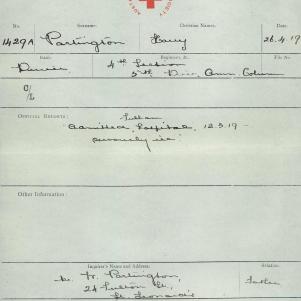 No. Surname. Christian Names. Date.
1429A Partington Harry 26.4.19
Rank: Regiment, &c. File No.
Driver 4th Section
5th Div. Amm. Column
C/L
Official Reports:
Admitted Hospital 12.3.19 –
seriously ill
Other Information:
Inquirer's Name and Address: Relation.
Mr. W. Partington, Father
24 Lulton St.,
St. Leonards